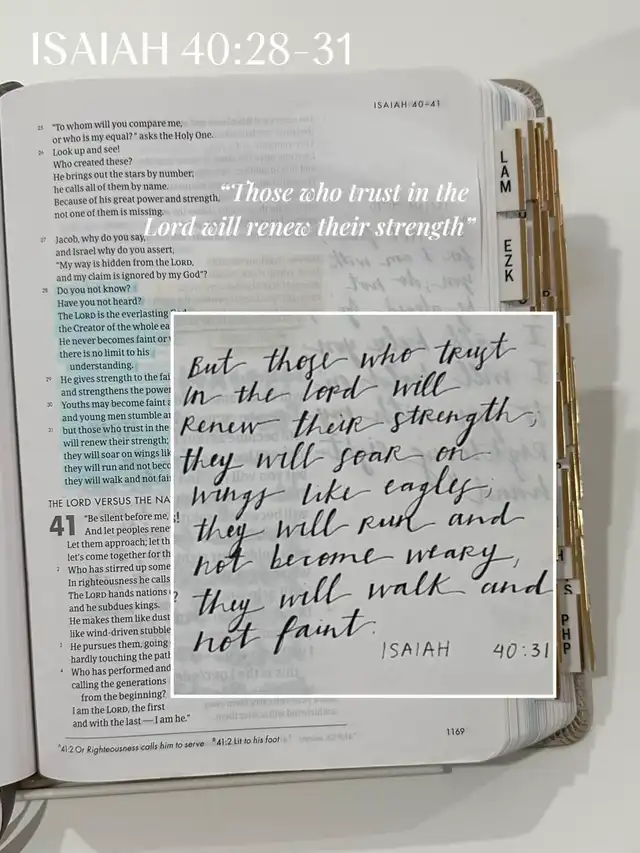 ISAIAH 40:28-31
ISAIAH 40–41
25 "To whom will you compare me,
or who is my equal?" asks the Holy One.
26 Look up and see!
Who created these?
He brings out the stars by number;
he calls all of them by name.
Because of his great power and strength,
not one of them is missing.
"Those who trust in the
Lord will renew their strength"
27 Jacob, why do you say,
and Israel why do you assert,
"My way is hidden from the LORD,
and my claim is ignored by my God"?
28 Do you not know?
Have you not heard?
The LORD is the everlasting
the Creator of the whole ea
He never becomes faint or
there is no limit to his
understanding.
29 He gives strength to the fai
and strengthens the power
30 Youths may become faint
and young men stumble a
31 but those who trust in the
will renew their strength;
they will soar on wings lik
they will run and not beco
they will walk and not fai
THE LORD VERSUS THE NA
41 "Be silent before me, s!
And let peoples rene
Let them approach; let th
let's come together for th
2 Who has stirred up some
In righteousness he calls
The LORD hands nations ?
and he subdues kings.
He makes them like dust
like wind-driven stubble
3 He pursues them, going
hardly touching the path
4 Who has performed and
calling the generations
from the beginning?
I am the LORD, the first
and with the last — I am he."
But those who trust
in the Lord will
renew their strength;
they will soar on
wings like eagles;
they will run and
not become weary,
they will walk and
not faint.
ISAIAH 40:31
1169
a 41:2 Or Righteousness calls him to serve B 41:2 Lit to his foot
LAM
EZK
D
H
S
PHP